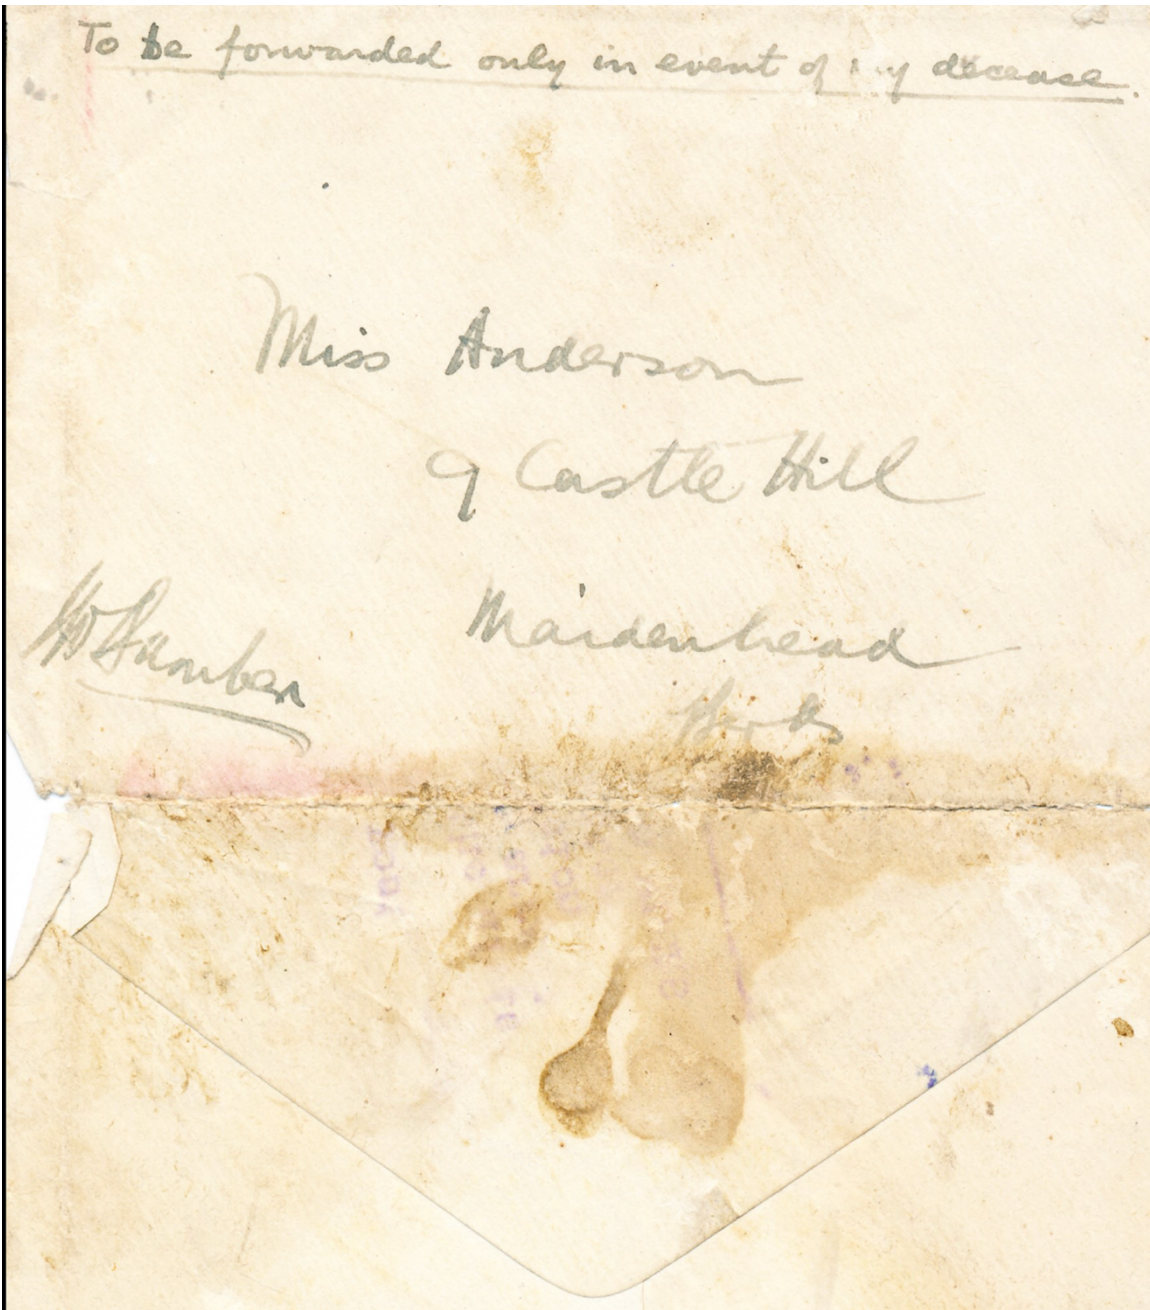 To be forwarded only in event of my decease.
Miss Anderson
9 Castle Hill
Maidenhead
Berks